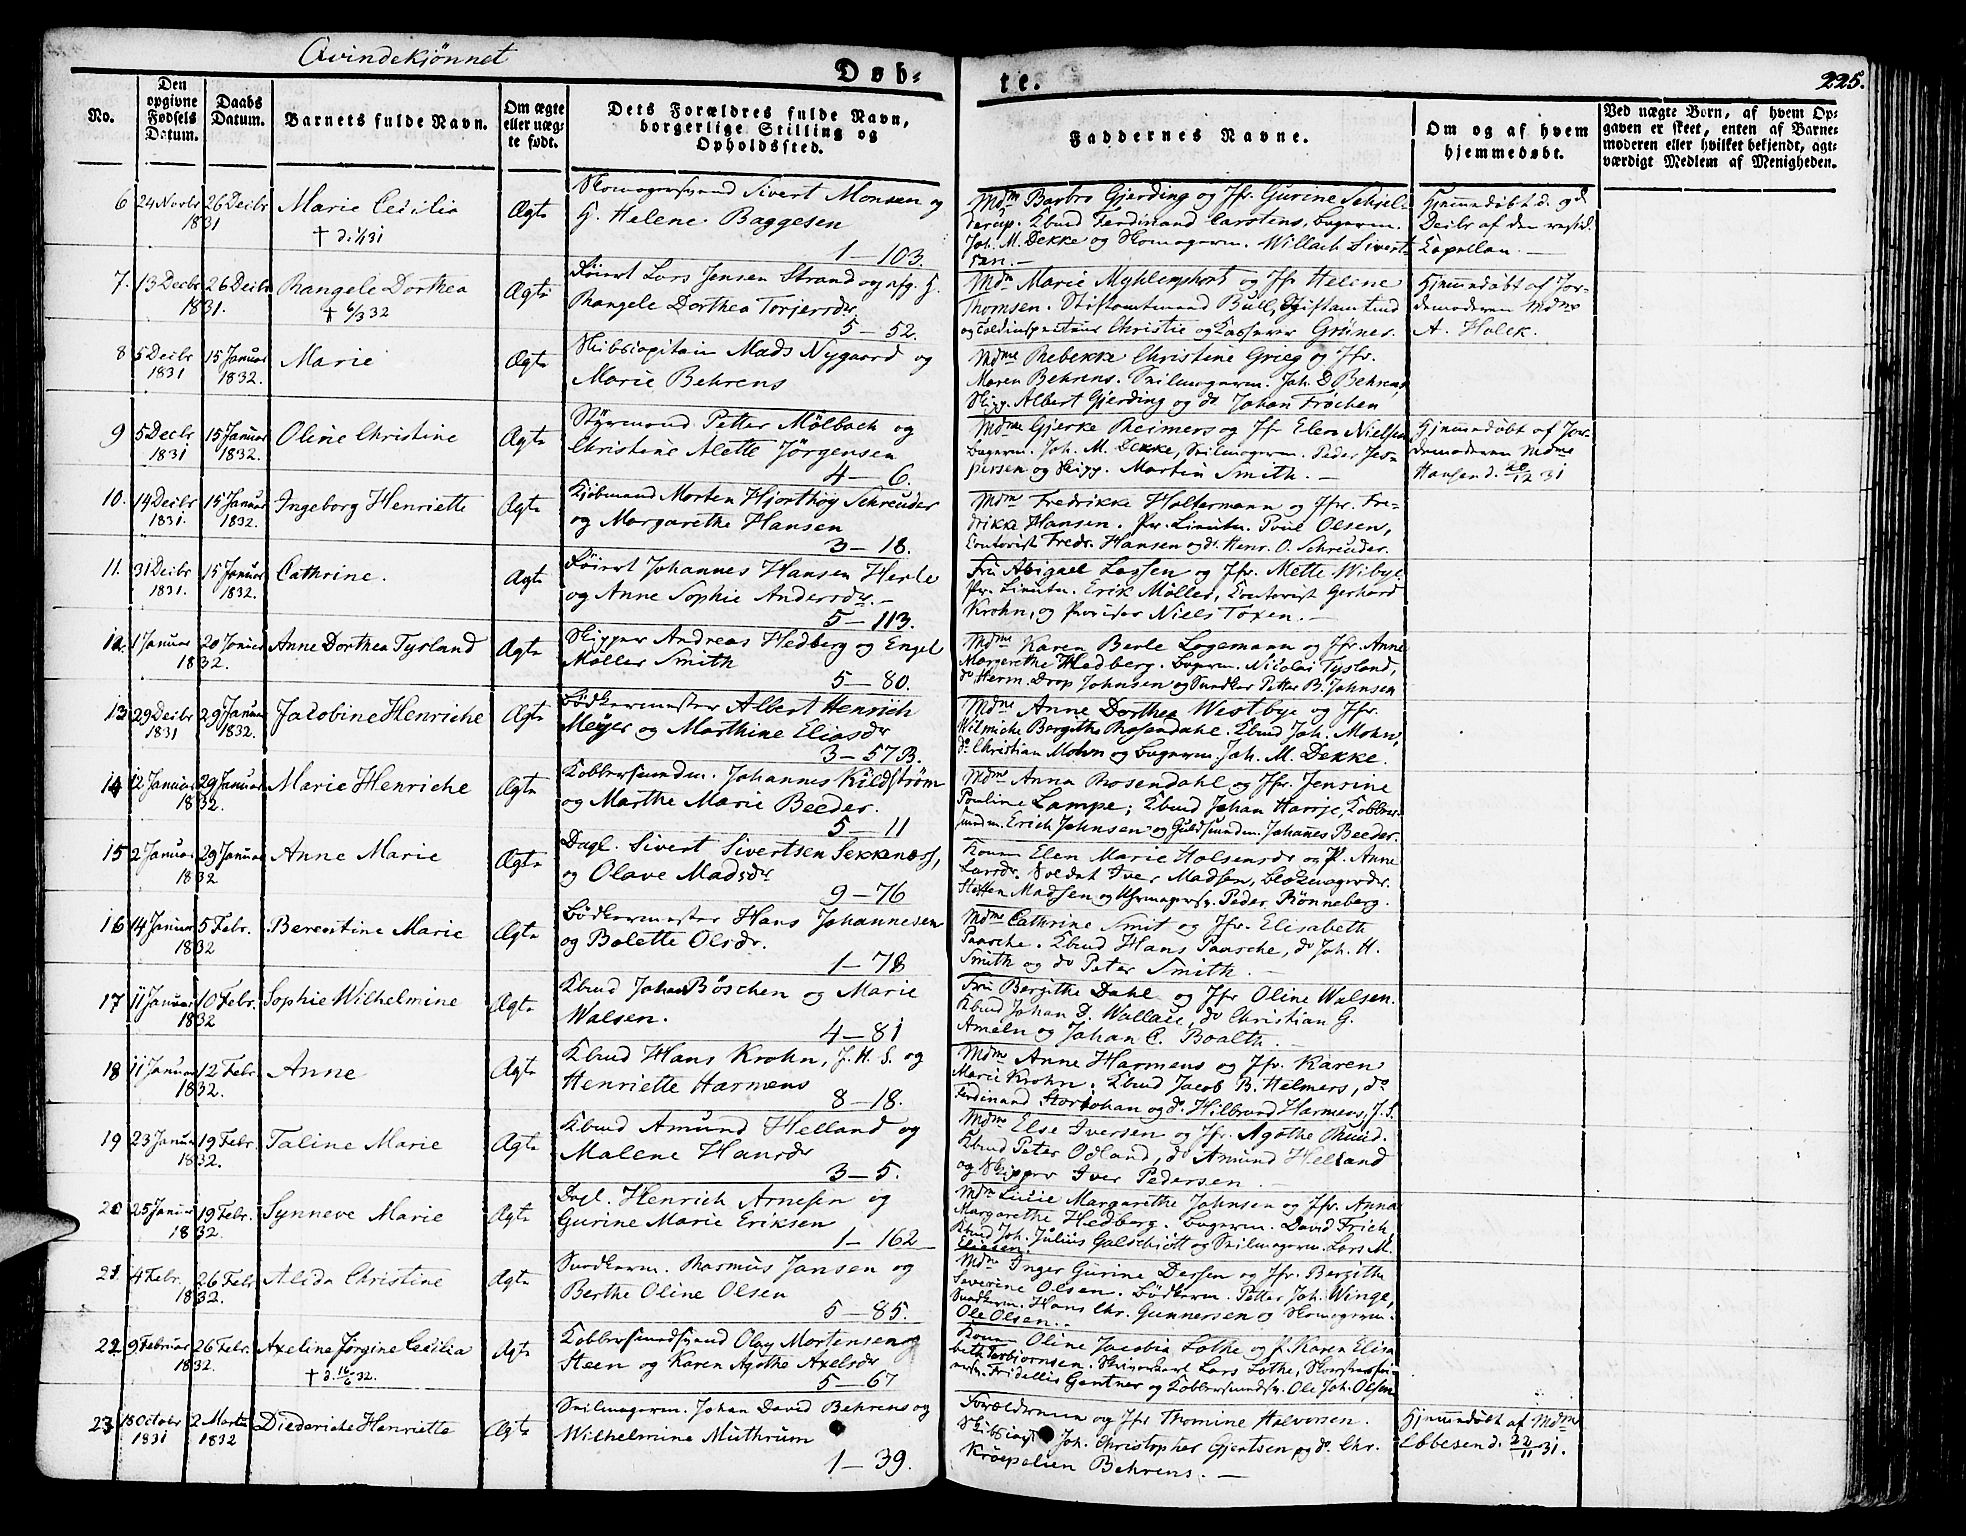 Qvindekjønnet
Døb-
te.
225.
No.
Den opgivne Fødsels Datum.
Daabs Datum.
Barnets fulde Navn.
Om ægte eller uægte født.
Dets Forældres fulde Navn, borgerlige Stilling og Opholdssted.
Faddernes Navne.
Om og af hvem hjemmedøbt.
Ved uægte Børn, af hvem Opgaven er skeet, enten af Barnemoderen eller hvilket bekjendt, agtværdigt Medlem af Menigheden.
6 24 Novbr 26 Decbr 1831
Marie Cecilia
Ægte
Skomagersvend Sivert Monsen og
H. Helene Baggesen
1 – 103.
Mdme Barbro Gjerding og Jfr. Gurine Schiel-
derup. Kbmd Ferdinand Carstens, bagerm.
Joh. M. Dekke og Skomagerm. Willach Sivert-
sen. –
Hjemmedøbt d.
Decbr af den resid.
Capellan. –
7. 13 Decbr 26 Decbr 1831.
Rangele Dorthea
† 6/3 32
Ægte
Fløiert Lars Jensen Strand og afg. H.
Rangele Dorthea Torjersdr
5 – 52.
Mdm Marie Myhlenphort og Jfr Helene
Thomsen. Stiftamtmand Bull,
og Toldinspecteur Christie og Kasserer Grüner.
Hjemmedøbt af Jor-
demoderen Mdme
A. Holck.
8 5 Decbr 1831 15 Januar 1832.
Marie
Ægte
Skibscapitain Mads Nygaard og
Marie Behrens
Mdme Rebekke Christine Grieg og Jfr.
Maren Behrens. Seilmagerm. Joh. D Behrens,
Skipp. Albert Gjerding og do Johan Frøchen
9 5 Decbr 1831 15 Januar 1832.
Oline Christine
Ægte
Styrmand Petter Mølbach og
Christine Alette Jørgensen
4 – 6.
Mdme Gjerke Reimers og Jfr Elen Nielsen
bagerm. Joh. M. Dekke, Seilmagerm. Peder Jes-
persen og Skipp. Martin Smith. –
Hjemmedøbt af Jor-
demoderen Mdme
Hansen d. 20/12 31
10. 14 Decbr 1831. 15 Januar 1832.
Ingeborg Henriette
Ægte
Kjøbmand Morten Hjorthøy Schreuder
og Margarethe Hansen
3 – 18.
Mdme Fredrikke Holtermann og Jfr. Fre-
drikke Hansen. Pr. Lieutn. Poul Olsen,
Contorist Fredr. Hansen og do. Henr. O. Schreuder.
11. 31 Decbr 1831. 15 Januar 1832.
Cathrine.
Ægte
Fløiert Johannes Hansen Herle
og Anne Sophie Andersdr. –
5 – 113.
Fru Abigael Lossen og Jfr. Mette Wibye
Pr. Lieutn. Erik Møller, Contorist Gerhard
Krohn, og Provisor Niels Toxen. –
12. 1 Januar 20 Januar 1832.
Anne Dorthea Tysland
Ægte
Skipper Andreas Hedberg og Engel
Møller Smith
5 – 80.
Mdme Karen Berle Logemann og Jfr. Anne
Margarethe Hedberg. bagerm. Nicolai Tysland,
do Herm. Drop Johnsen og Snedker Petter B. Johnsen
13 29 Decbr 1831 29 Januar 1832.
Jacobine Henriche
Ægte
Bødkermester Albert Henrich
Meyer og Marthine Eliasdr
3 – 57 B.
Mdme Anne Dorthea Westbye og Jfr.
Wilmiche Bergithe Rosendahl. Kbmd Joh. Mohn,
do Christian Mohn og bagerm. Joh. M. Dekke.
14 12 Januar 29 Januar 1832.
Marie Henriche
Ægte
Kobbersmedm. Johannes Kildstrøm
og Marthe Marie Beeder.
5 – 11
Mdme Anna Rosendahl og Jfr. Jensine
Pouline Lampe; Kbmd Johan Harrje, Kobber-
smedm. Erich Johnsen og Guldsmedm. Johanes Beeder.
15 2 Januar 29 Januar 1832
Anne Marie
Ægte
Dagl. Sivert Sivertsen Sekknæss,
og Olave Madsdr
9 – 76
Konen Elen Marie Halsensdr og P. Anne
Larsdr. Soldat Iver Madsen,
Steffen Madsen og Peder Rønneberg.
16 14 Januar 5 Febr. 1832
Berentine Marie
Ægte
Bødkermester Hans Johannesen
og Bolette Olsdr.
1 – 78
Mdme Cathrine Smit og Jfr. Elisabeth
Paasche. Kbmd Hans Paasche, do Joh. H.
Smith og do Peter Smith. –
17 11 Januar 10 Febr. 1832
Sophie Wilhelmine
Ægte
Kbmd Johan Bøschen og Marie
Walsen.
4 – 81
Fru Bergithe Dahl og Jfr Oline Walsen.
Kbmd Johan D. Wallace, do Christian G.
Ameln og Johan C. Boalth. –
18 11 Januar 12 Febr. 1832.
Anne
Ægte
Kbmd Hans Krohn, J. H. S. og
Henriette Harmens
8 – 18.
Mdme Anne Harmens og Jfr. Karen
Marie Krohn. Kbmd Jacob B. Helmers, do
Ferdinand Storjohan og do. Hilbrand Harmens, J. S.
19 23 Januar 19 Febr. 1832.
Taline Marie
Ægte
Kbmd Amund Helland og
Malene Hansdr
3 – 5.
Mdme Else Iversen og Jfr. Agathe Ruud.
Kbmd Peter Odland, do Amund Helland
og Skipper Iver Pedersen.
20 25 Januar 19 Febr. 1832.
Synneve Marie
Ægte
Dagl. Henrich Arnesen og
Gurine Marie Eriksen
1 – 162
Mdm Lucie Margarethe Johnsen og Jfr. Anna
Margarethe Hedberg. bagerm. David Frich,
Kbmd Joh. Julius Galschiøtt og Seilmagerm. Lars M.
Eliesen.
21. 4 Febr. 26 Febr 1832.
Alida Christine
Ægte
Snedkerm. Rasmus Jansen og
Berthe Oline Olsen
5 – 85.
Mdme Inger Gurine Dessen og Jfr. Bergithe
Severine Olsen. Bødkerm. Petter Joh. Winge,
Snedkerm. Hans Chr. Gunnersen og Skomagerm.
Ole Olsen.
22 9 Februar 26 Febr. 1832.
Axeline Jørgine Cecilia
† d. 16/6 32.
Ægte
Kobbersmedsvend Olay Mortensen
Steen og Karen Agathe Axelsdr
5 – 67
Konen Oline Jacobia Lothe og P. Karen Elisa
beth Torbjørnsen. Skriverkarl Lars Lothe,
Fridellis Gentner og Kobbersmedsv. Ole Joh. Olsen
23 18 Octobr 1831 2 Marts 1832
Diederiche Henriette
Ægte
Seilmagerm. Johan David Behrens og
Wilhelmine Muthrum
1 – 39.
Forældrene og Jfr Thomine Halvorsen.
Skibscapt Joh. Christopher Gjertsen og do. Chr.
Krøepelien Behrens. –
Hjemmedøbt af Mdme
Ebbesen d. 22/11 31.